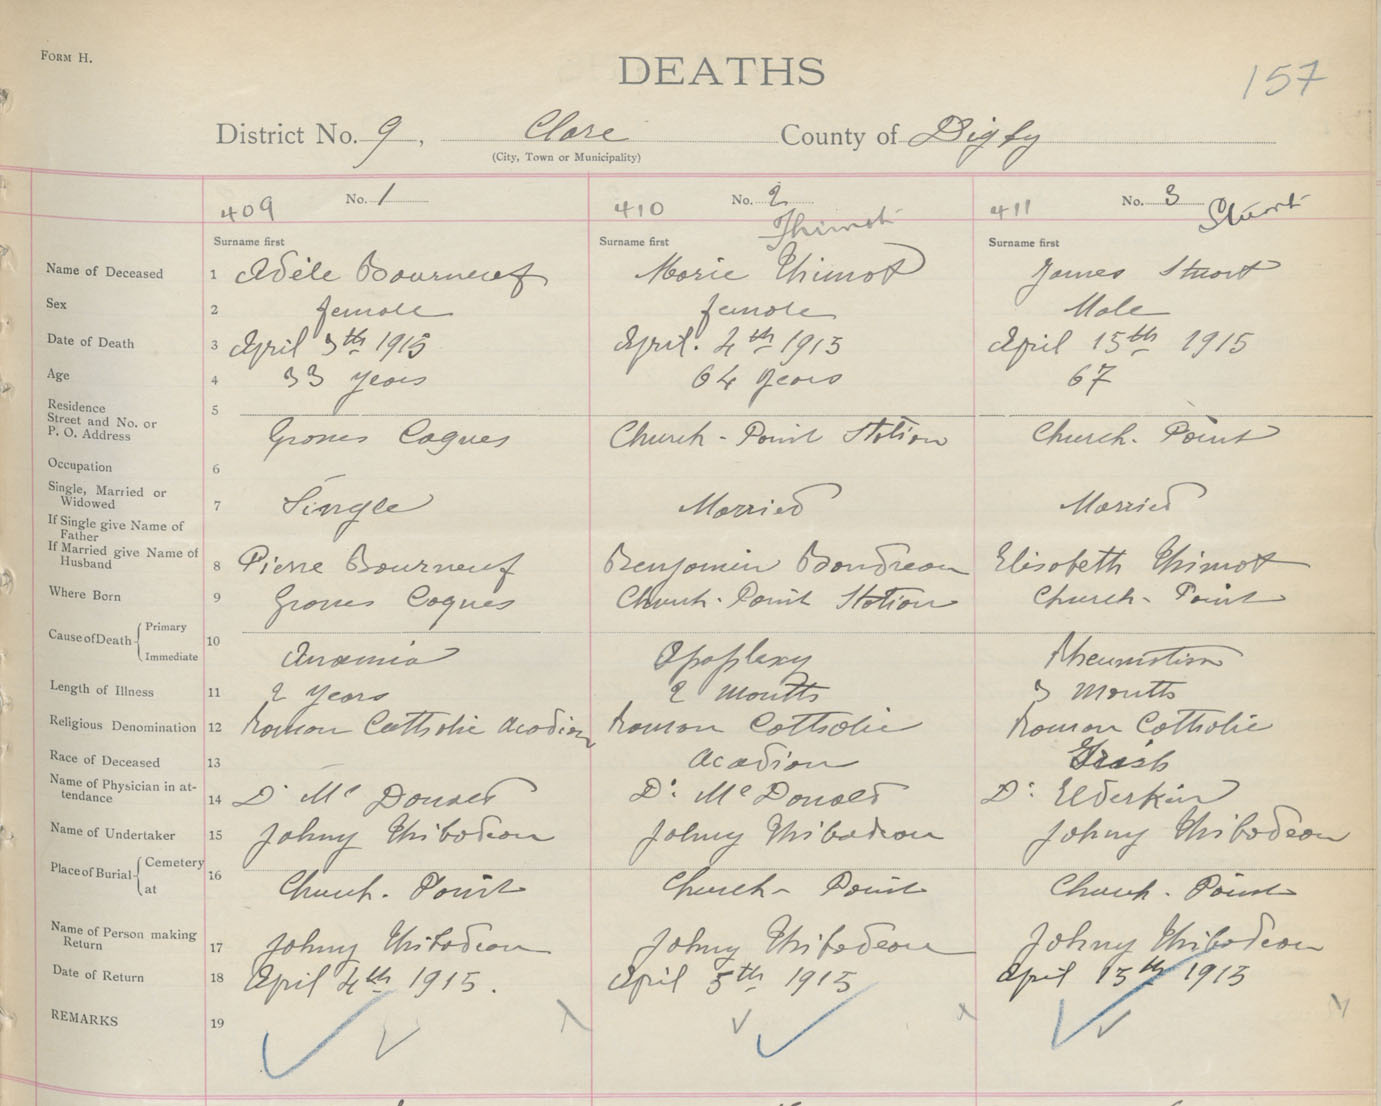 Form H.
DEATHS
157
District No. 9, Clare County of Digby
(City, Town or Municipality)
409 No. 1 410 No. 2 411 No. 3 Stuart
Thimot
Surname first Surname first Surname first
Name of Deceased 1 Adèle Bourneuf Marie Thimot James Stuart
Sex 2 female female Male
Date of Death 3 April 3th 1915 April. 4th 1915 April 15th 1915
Age 4 33 years 64 years 67
Residence
Street and No. or
P. O. Address 5 Grosses Coques Church-Point Station Church-Point
Occupation 6
Single, Married or
Widowed 7 Single Married Married
If Single give Name of
Father
If Married give Name of
Husband 8 Pierre Bourneuf Benjamin Boudreau Elisabeth Thimot
Where Born 9 Grosses Coques Church-Point Station Church-Point
Cause of Death Primary Immediate 10 Anæmia Apoplexy Rheumatism
Length of Illness 11 2 years 2 months 3 months
Religious Denomination 12 Roman Cattholic Acadian Roman Cattholic Roman Cattholic
Race of Deceased 13 Acadian Irish
Name of Physician in at-
tendance 14 Dr McDonald Dr McDonald Dr Elderkin
Name of Undertaker 15 Johny Thibodeau Johny Thibodeau Johny Thibodeau
Place of Burial Cemetery at 16 Church-Point Church-Point Church-Point
Name of Person making
Return 17 Johny Thibodeau Johny Thibodeau Johny Thibodeau
Date of Return 18 April 4th 1915. April 5th 1915 April 15th 1915
REMARKS 19